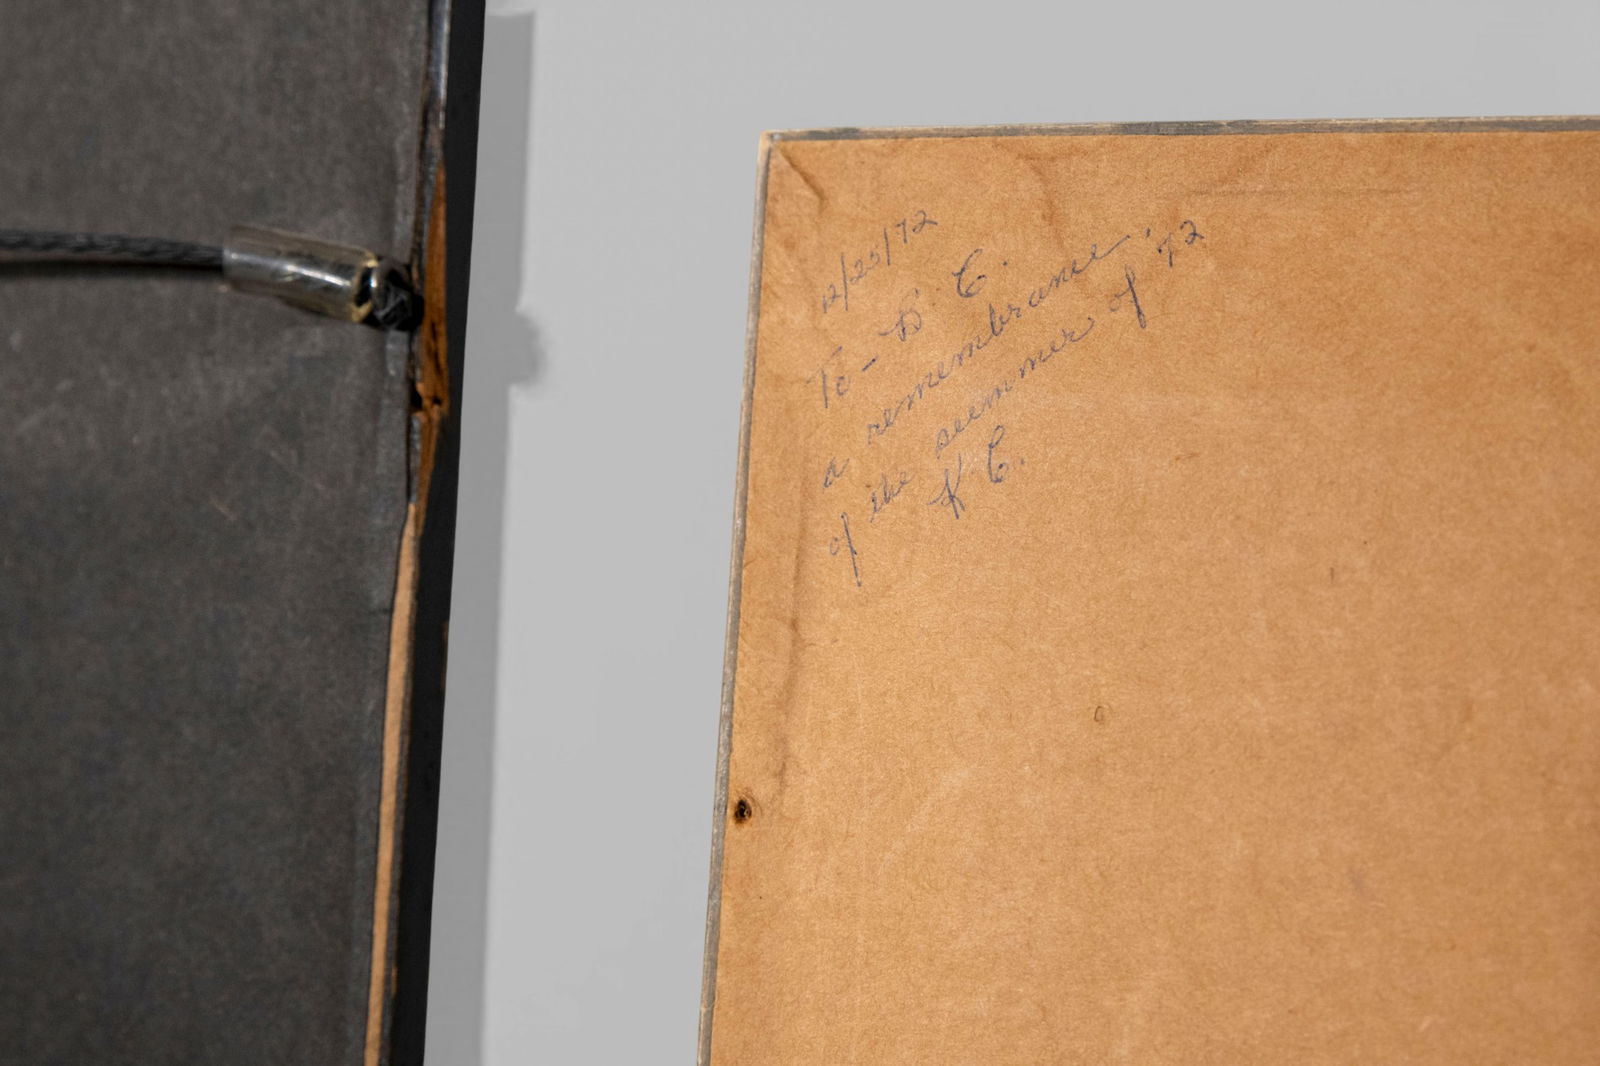 12/25/72
To - B. C.
a remembrance
of the summer of '72
K C.